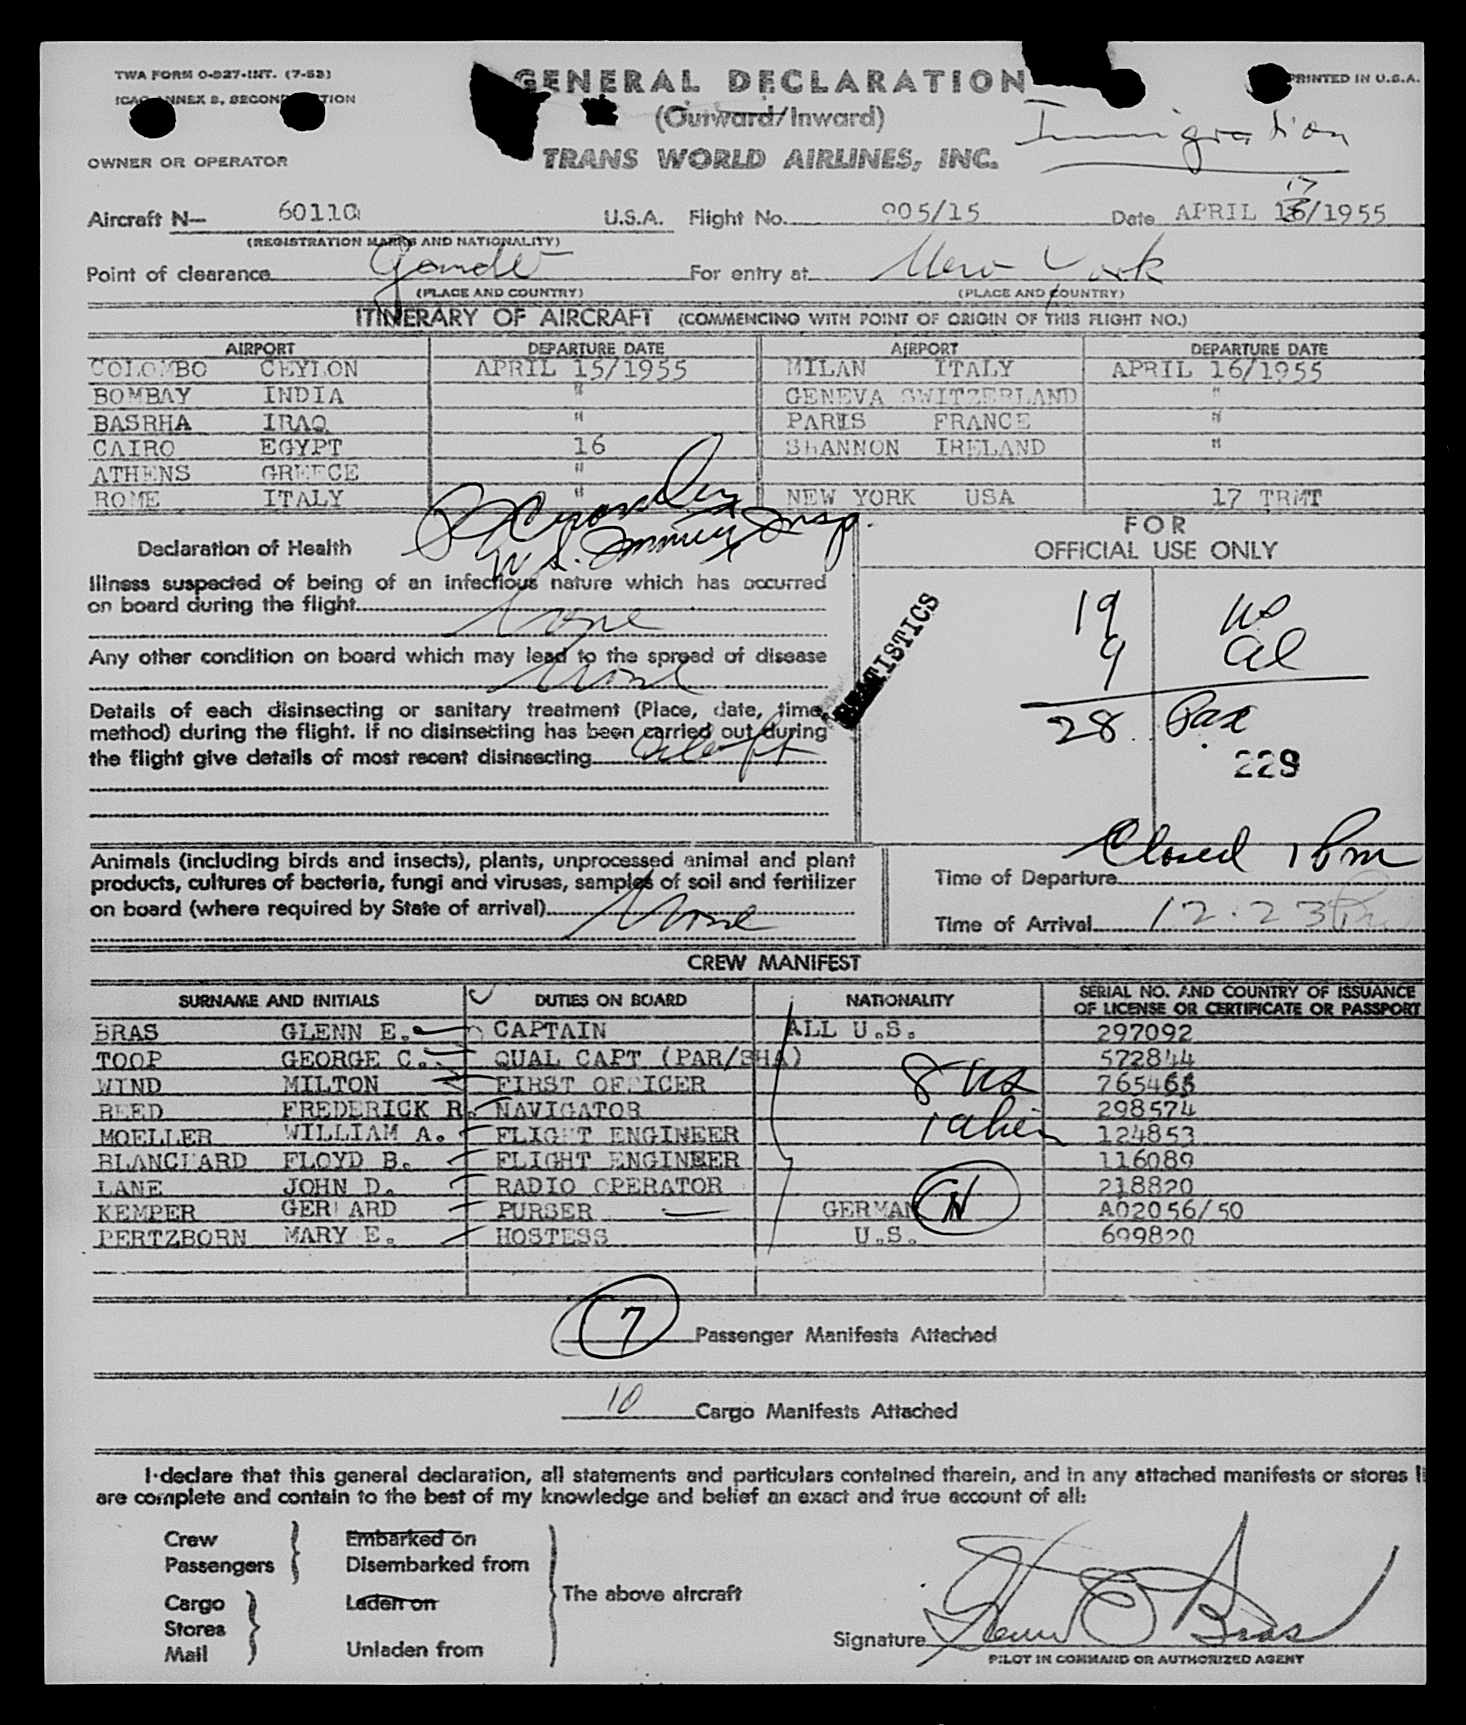 TWA FORM O-827-INT. (7-53)
GENERAL DECLARATION
PRINTED IN U.S.A.
ICAO ANNEX 9, SECOND EDITION
(Outward/Inward)
Immigration
OWNER OR OPERATOR
TRANS WORLD AIRLINES, INC.
17
Aircraft N— 6011C U.S.A. Flight No. 905/15 Date APRIL 16/1955
(REGISTRATION MARKS AND NATIONALITY)
Point of clearance Gander For entry at New York
(PLACE AND COUNTRY) (PLACE AND COUNTRY)
ITINERARY OF AIRCRAFT (COMMENCING WITH POINT OF ORIGIN OF THIS FLIGHT NO.)
AIRPORT DEPARTURE DATE AIRPORT DEPARTURE DATE
COLOMBO CEYLON APRIL 15/1955 MILAN ITALY APRIL 16/1955
BOMBAY INDIA " GENEVA SWITZERLAND "
BASRHA IRAQ " PARIS FRANCE "
CAIRO EGYPT 16 SHANNON IRELAND "
ATHENS GREECE "
ROME ITALY " NEW YORK USA 17 TRMT
FOR
OFFICIAL USE ONLY
Declaration of Health
Illness suspected of being of an infectious nature which has occurred
on board during the flight None
Any other condition on board which may lead to the spread of disease
None
Details of each disinsecting or sanitary treatment (Place, date, time,
method) during the flight. If no disinsecting has been carried out during
the flight give details of most recent disinsecting
STATISTICS
19 US
9 al
28 Pax
229
Animals (including birds and insects), plants, unprocessed animal and plant
products, cultures of bacteria, fungi and viruses, samples of soil and fertilizer
on board (where required by State of arrival) None
Closed 1 pm
Time of Departure
Time of Arrival 12.23 Pm
CREW MANIFEST
SURNAME AND INITIALS DUTIES ON BOARD NATIONALITY SERIAL NO. AND COUNTRY OF ISSUANCE OF LICENSE OR CERTIFICATE OR PASSPORT
BRAS GLENN E. CAPTAIN ALL U.S. 297092
TOOP GEORGE C. QUAL CAPT (PAR/SHA) 572844
WIND MILTON FIRST OFFICER 765465
REED FREDERICK R. NAVIGATOR 298574
MOELLER WILLIAM A. FLIGHT ENGINEER 124853
BLANCHARD FLOYD B. FLIGHT ENGINEER 116089
LANE JOHN D. RADIO OPERATOR 218820
KEMPER GERHARD PURSER GERMAN A02056/50
PERTZBORN MARY E. HOSTESS U.S. 699820
8 US
1 alien
N
7 Passenger Manifests Attached
10 Cargo Manifests Attached
I declare that this general declaration, all statements and particulars contained therein, and in any attached manifests or stores li
are complete and contain to the best of my knowledge and belief an exact and true account of all:
Crew Embarked on
Passengers Disembarked from
The above aircraft
Cargo Laden on
Stores
Mail Unladen from
Signature Glenn E Bras
PILOT IN COMMAND OR AUTHORIZED AGENT